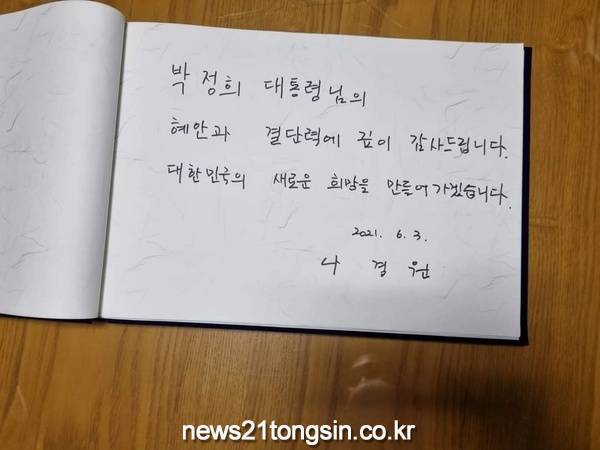 박정희 대통령님의
혜안과 결단력에 깊이 감사드립니다.
대한민국의 새로운 희망을 만들어가겠습니다.
2021. 6. 3.
나 경 원
news21tongsin.co.kr